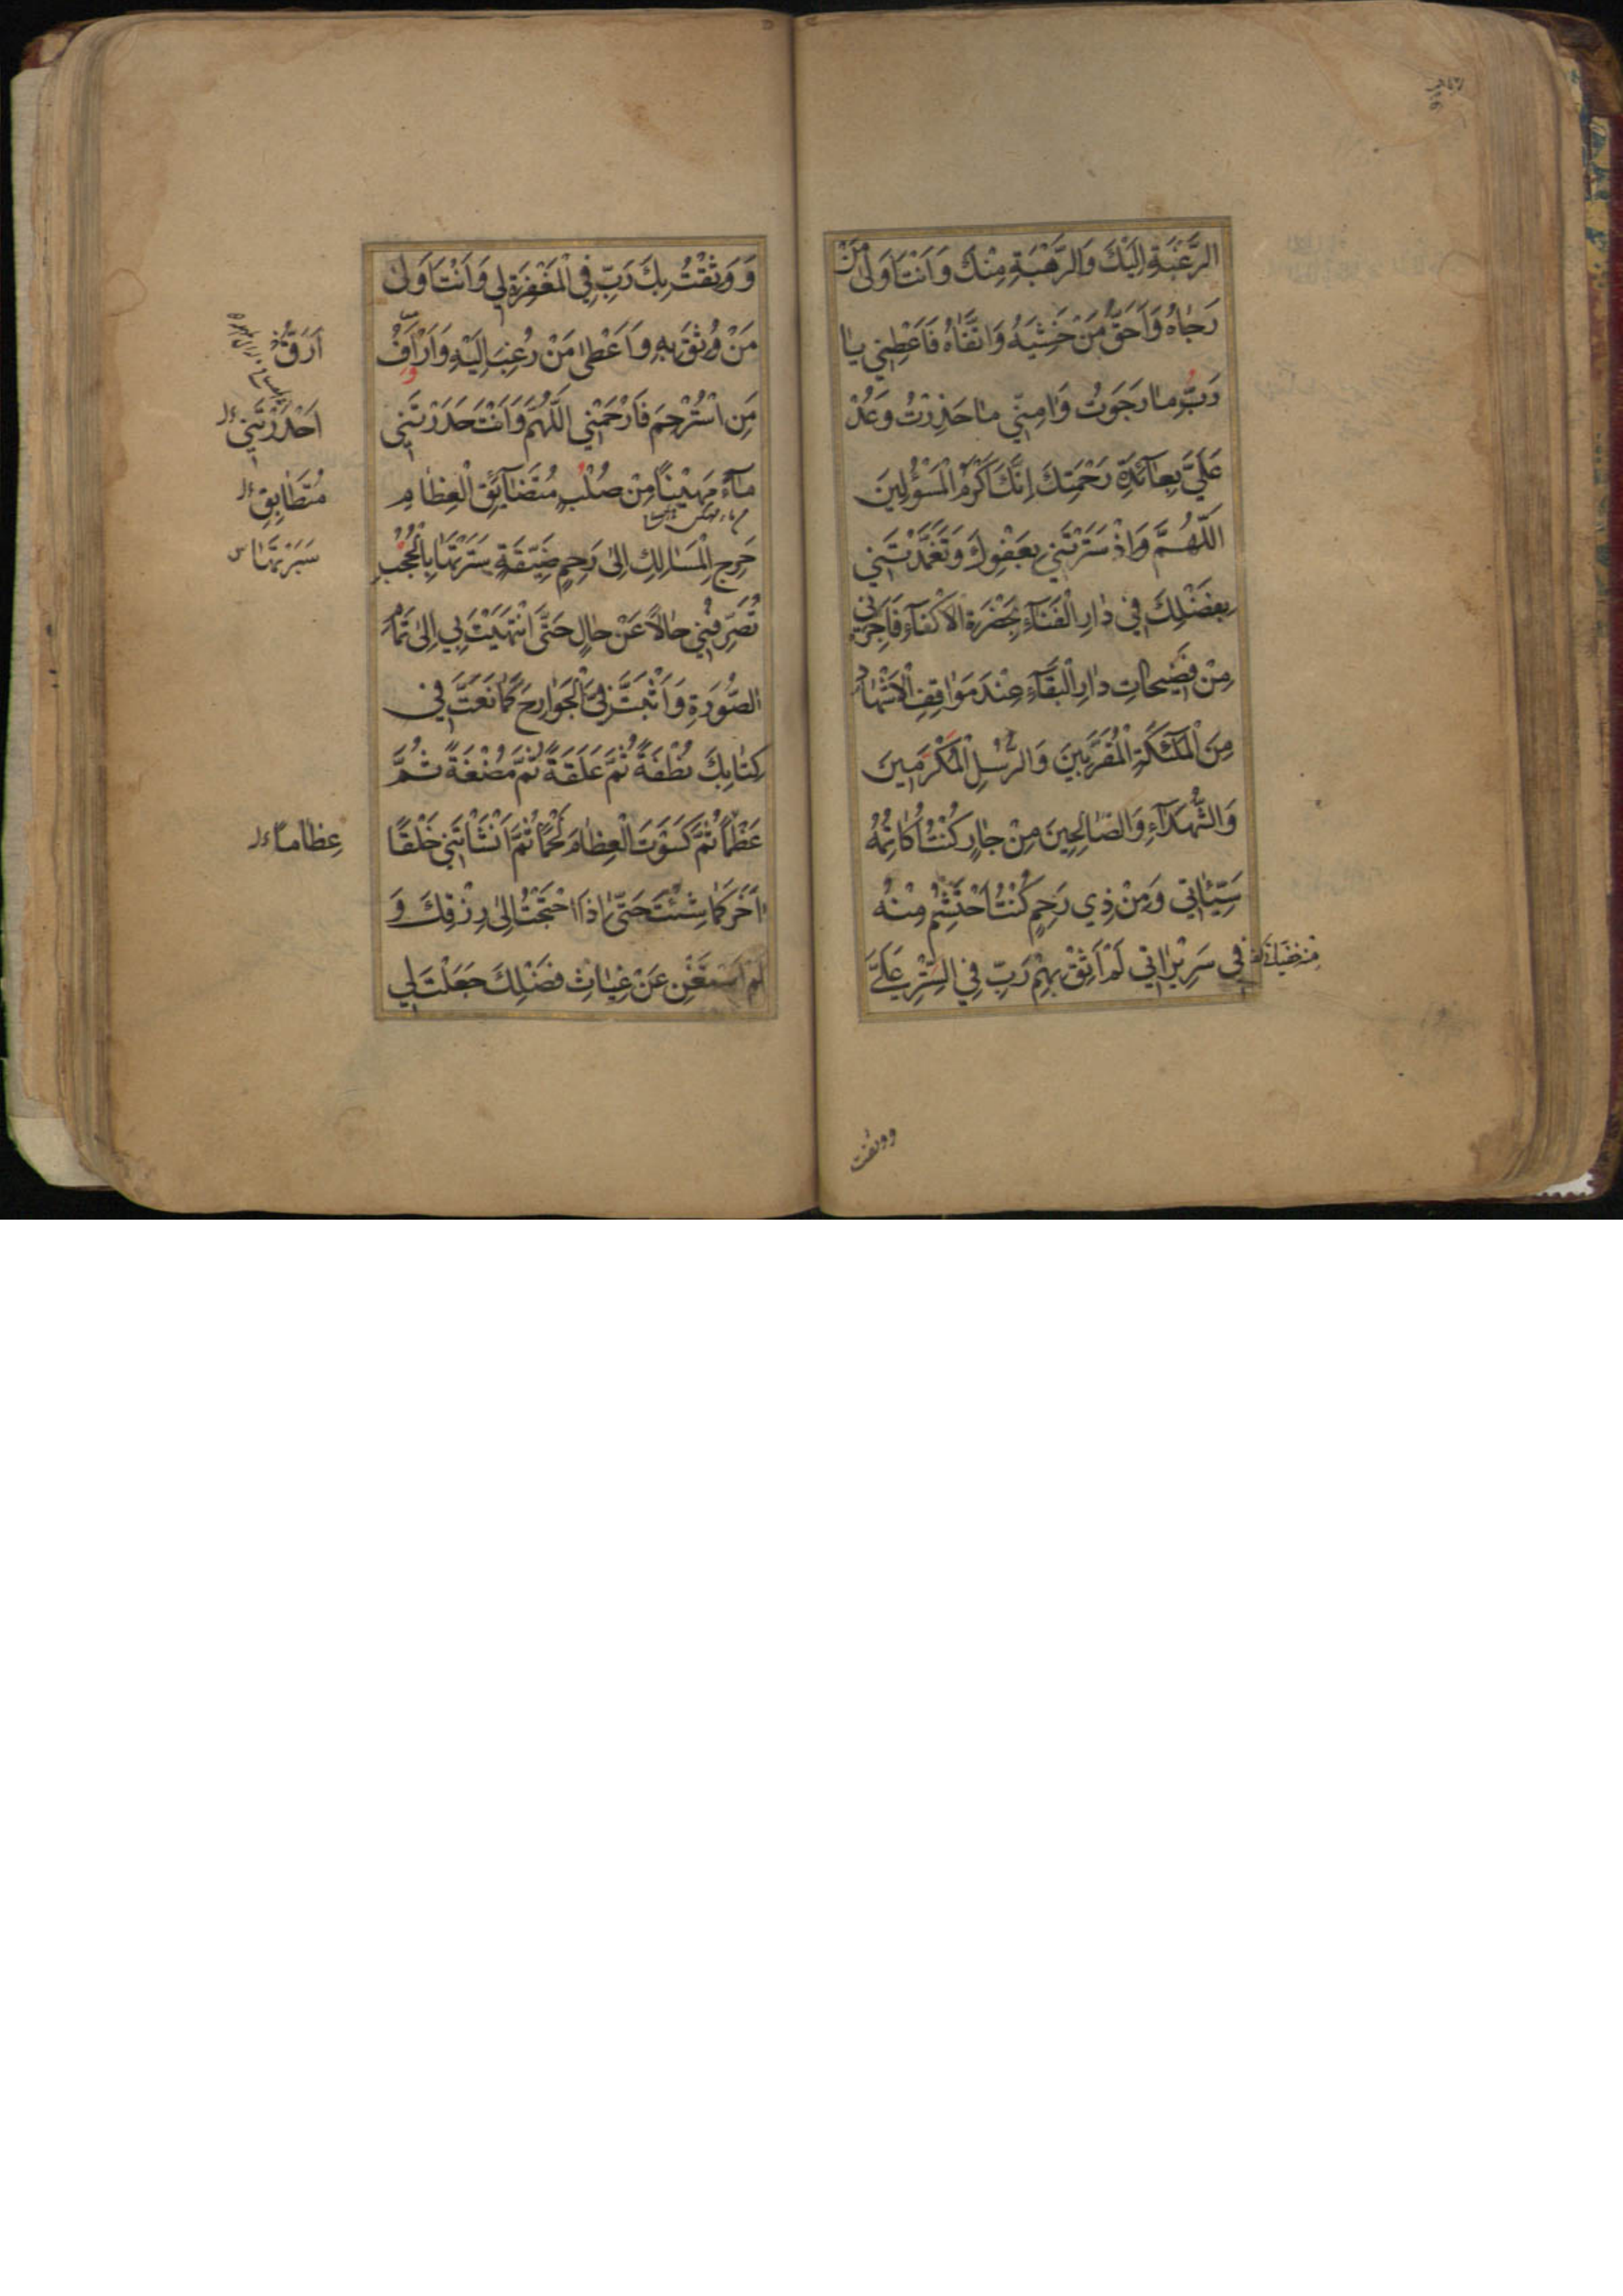 الرَّغْبَةِ اِلَيْكَ وَالرَّهْبَةِ مِنْكَ وَاَنْتَ اَوْلٰى مَنْ
رَجَاهُ وَاَحَقُّ مَنْ خَشِيَهُ وَاتَّقَاهُ فَاَعْطِنِي يَا
رَبِّ مَا رَجَوْتُ وَاٰمِنِّي مَا حَذِرْتُ وَعُدْ
عَلَيَّ بِعَائِدَةِ رَحْمَتِكَ اِنَّكَ اَكْرَمُ الْمَسْؤُلِينَ
اَللّٰهُمَّ وَاِذْ سَتَرْتَنِي بِعَفْوِكَ وَتَغَمَّدْتَنِي
بِفَضْلِكَ فِي دَارِ الْفَنَاءِ بِحَضْرَةِ الْاَكْفَاءِ فَاَجِرْنِي
مِنْ فَضِيحَاتِ دَارِ الْبَقَاءِ عِنْدَ مَوَاقِفِ الْاَشْهَادِ
مِنَ الْمَلٰئِكَةِ الْمُقَرَّبِينَ وَالرُّسُلِ الْمُكْرَمِينَ
وَالشُّهَدَاءِ وَالصَّالِحِينَ مِنْ جَارٍ كُنْتُ اُكَاتِمُهُ
سَيِّئَاتِي وَمِنْ ذِي رَحِمٍ كُنْتُ اَحْتَشِمُ مِنْهُ
فِي سَرِيرَاتِي لَمْ اَثِقْ بِهِمْ رَبِّ فِي السِّتْرِ عَلَيَّ
ووثقت
وَ وَثِقْتُ بِكَ رَبِّ فِي الْمَغْفِرَةِ لِي وَاَنْتَ اَوْلٰى
مَنْ وُثِقَ بِهِ وَاَعْطٰى مَنْ رُغِبَ اِلَيْهِ وَاَرْاَفُ
مَنِ اسْتُرْحِمَ فَارْحَمْنِي اَللّٰهُمَّ وَاَنْتَ حَدَرْتَنِي
مَاءً مَهِينًا مِنْ صُلْبٍ مُتَضَائِقِ الْعِظَامِ
حَرِجِ الْمَسَالِكِ اِلٰى رَحِمٍ ضَيِّقَةٍ سَتَرْتَهَا بِالْحُجُبِ
تُصَرِّفُنِي حَالًا عَنْ حَالٍ حَتَّى انْتَهَيْتَ بِي اِلٰى تَمَامِ
الصُّورَةِ وَاَثْبَتَّ فِيَّ الْجَوَارِحَ كَمَا نَعَتَّ فِي
كِتَابِكَ نُطْفَةً ثُمَّ عَلَقَةً ثُمَّ مُضْغَةً ثُمَّ
عَظْمًا ثُمَّ كَسَوْتَ الْعِظَامَ لَحْمًا ثُمَّ اَنْشَاْتَنِي خَلْقًا
اٰخَرَ كَمَا شِئْتَ حَتّٰى اِذَا احْتَجْتُ اِلٰى رِزْقِكَ وَ
لَمْ اَسْتَغْنِ عَنْ غِيَاثِ فَضْلِكَ جَعَلْتَ لِي
اَرَقُّ
اَحْدَرْتَنِي
مُتَطَابِقِ
سَبَرْتَهَا س
عِظَامًا